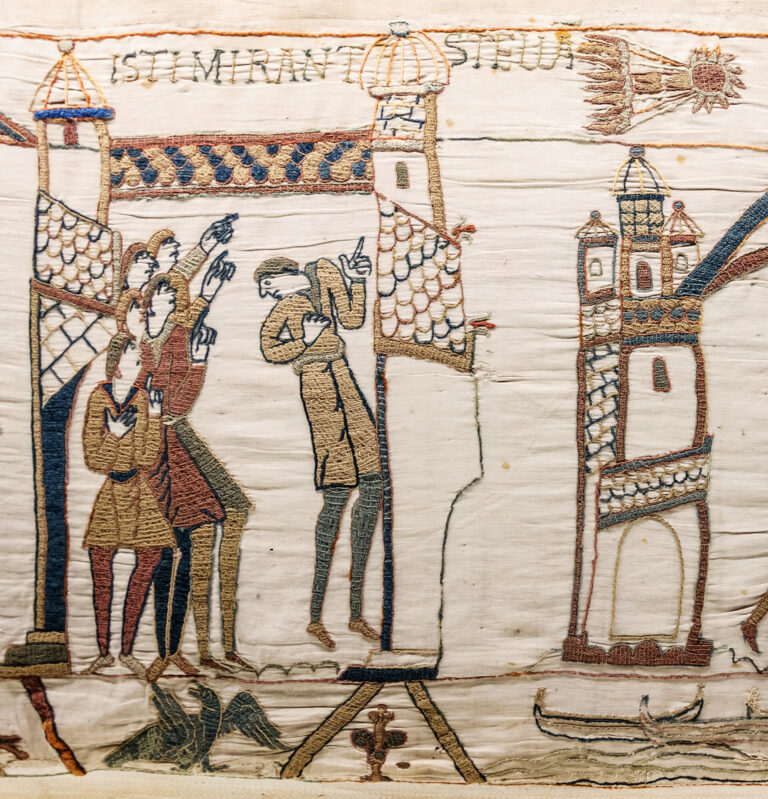 ISTI MIRANT STELLÃ